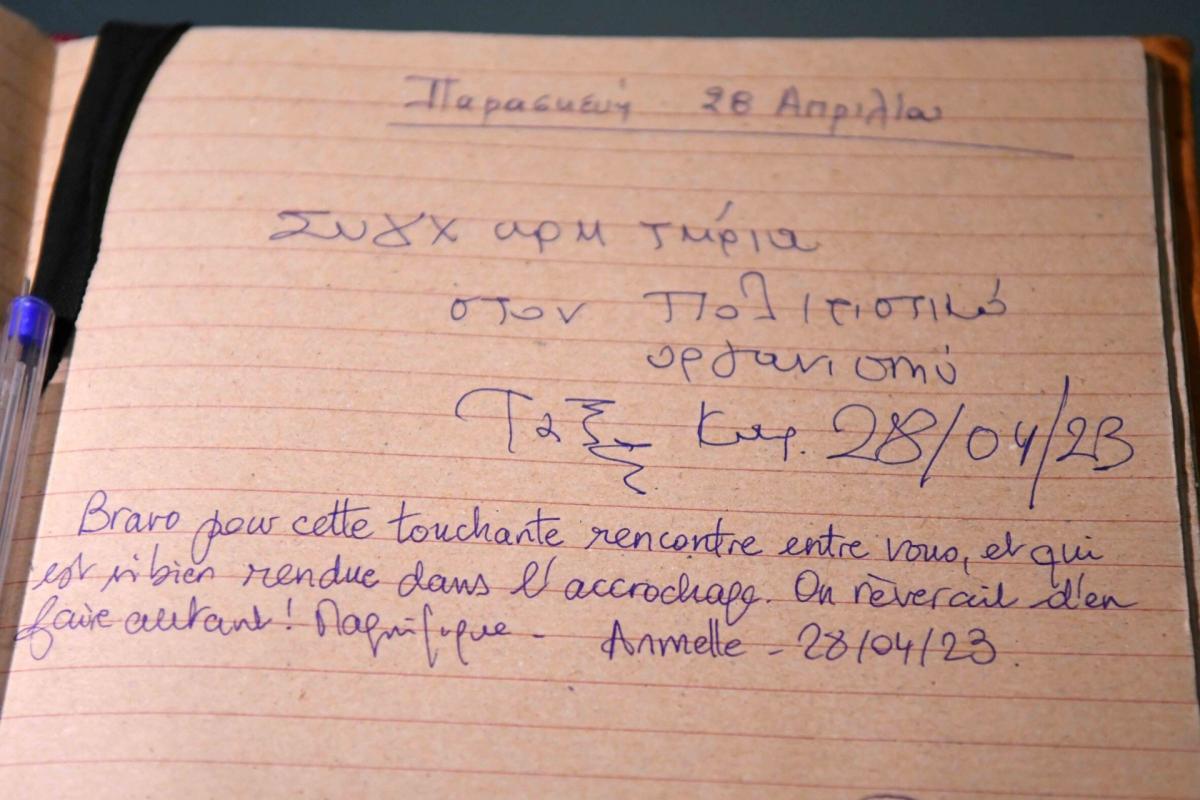 Παρασκευή 28 Απριλίου
Συγχαρη τήρια
στον Πολιτιστικό
οργανισμό
28/04/23
Bravo pour cette touchante rencontre entre vous, et qui
est si bien rendue dans l'accrochage. On rêverait d'en
faire autant! Magnifique - Armelle - 28/04/23.